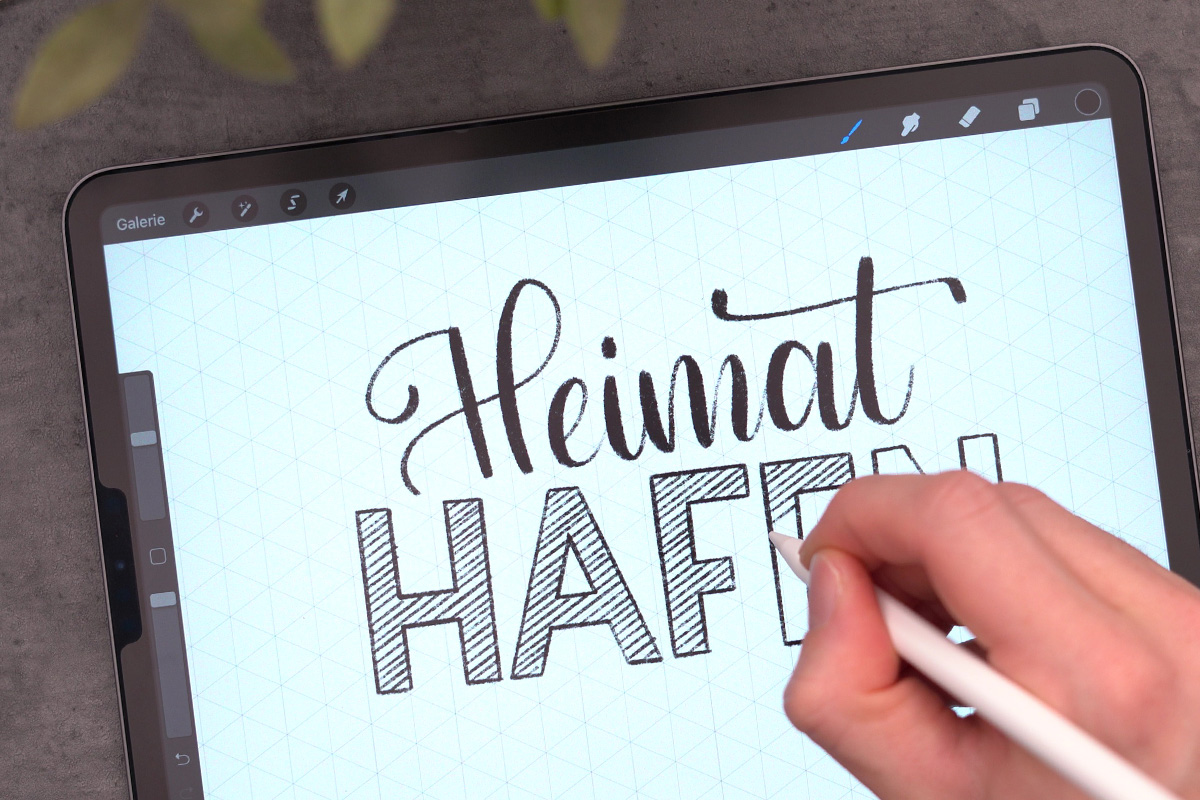 Galerie
Heimat
HAFEN